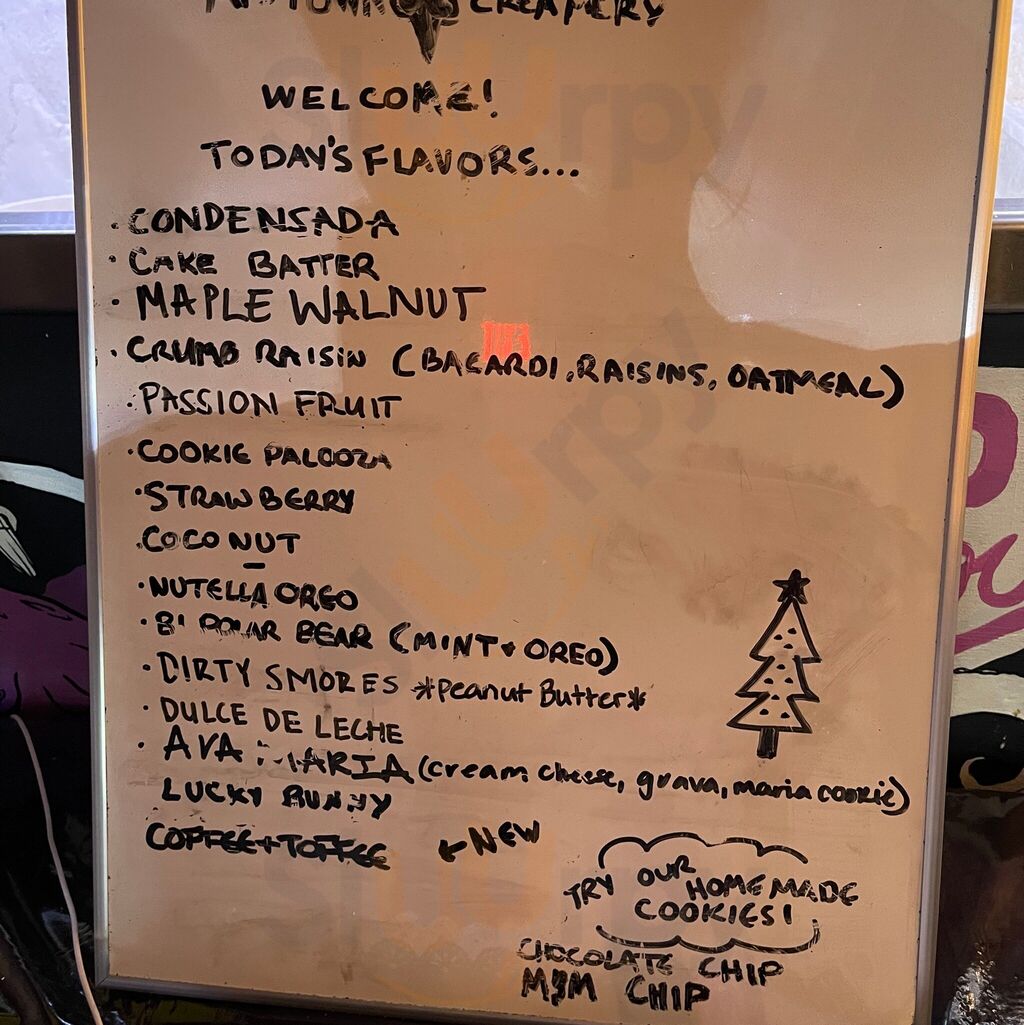 CREAMERY
WELCOME!
TODAY'S FLAVORS...
· CONDENSADA
· CAKE BATTER
· MAPLE WALNUT
· CRUMB RAISIN (BACARDI, RAISINS, OATMEAL)
· PASSION FRUIT
· COOKIE PALOOZA
· STRAWBERRY
· COCONUT
· NUTELLA OREO
· BI POLAR BEAR (MINT + OREO)
· DIRTY SMORES *Peanut Butter*
· DULCE DE LECHE
· AVA MARIA (cream cheese, guava, maria cookie)
LUCKY BUNNY
COFFEE+TOFFEE ← NEW
TRY OUR HOMEMADE
COOKIES!
CHOCOLATE CHIP
M&M CHIP
slurpy
slurpy